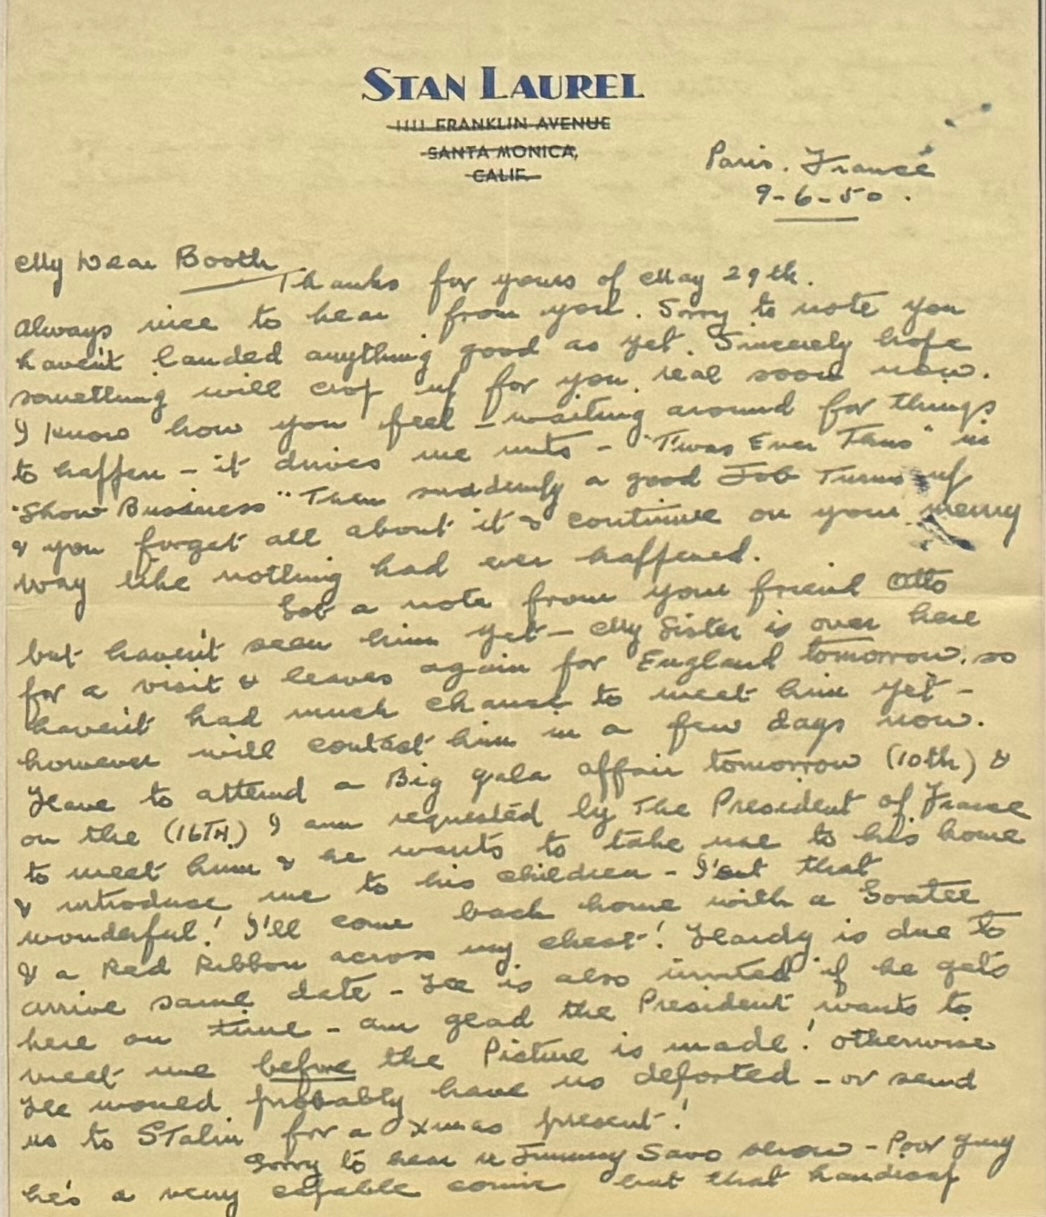 STAN LAUREL
1111 FRANKLIN AVENUE
SANTA MONICA,
CALIF.
Paris. France
9-6-50.
My Dear Booth
Thanks for yours of May 29th.
Always nice to hear from you. Sorry to note you
haven't landed anything good as yet. Sincerely hope
something will crop up for you, real soon now.
I know how you feel - waiting around for things
to happen - it drives me nuts - "T'was Ever Thus" in
"Show Business" Then suddenly a good Job Turns up
& you forget all about it & continue on your merry
way like nothing had ever happened.
Got a note from your friend Otto
but haven't seen him yet - My Sister is over here
for a visit & leaves again for England tomorrow, so
haven't had much chance to meet him yet -
however will contact him in a few days now.
Have to attend a Big gala affair tomorrow (10th) &
on the (16TH.) I am requested by The President of France
to meet him & he wants to take me to his home
& introduce me to his children - I'snt that
wonderful! I'll come back home with a Goatee
& a Red Ribbon across my chest! Hardy is due to
arrive same date - He is also invited if he gets
here on time - am glad the President wants to
meet me before the Picture is made! otherwise
He would probably have us deported - or send
us to STalin for a Xmas present!
Sorry to hear re Jimmy Savo show - Poor guy
he's a very capable comic but that handicap